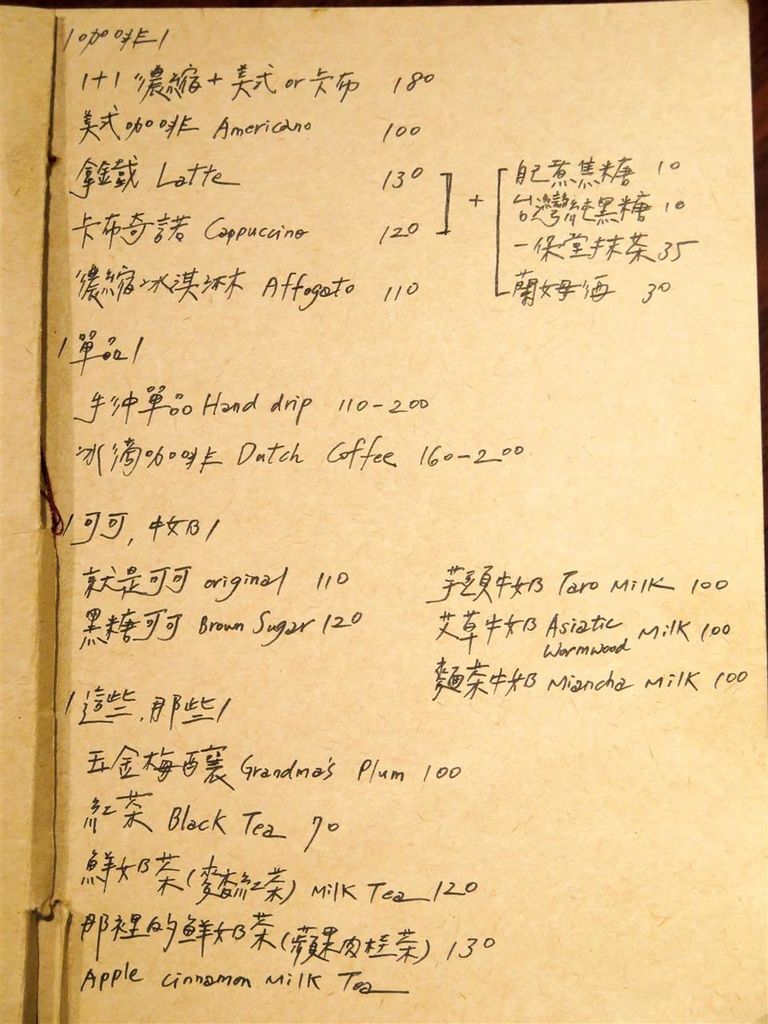 /咖啡/
1+1 濃縮+美式 or 卡布 180
美式咖啡 Americano 100
拿鐵 Latte 130
卡布奇諾 Cappuccino 120
濃縮冰淇淋 Affogato 110
+
自己煮焦糖 10
台灣純黑糖 10
一保堂抹茶 35
蘭姆酒 30
/單品/
手沖單品 Hand drip 110-200
冰滴咖啡 Dutch Coffee 160-200
/可可,牛奶/
就是可可 original 110
黑糖可可 Brown Sugar 120
芋頭牛奶 Taro Milk 100
艾草牛奶 Asiatic Wormwood Milk 100
麵茶牛奶 Miancha Milk 100
/這些,那些/
五金梅釀 Grandma's Plum 100
紅茶 Black Tea 70
鮮奶茶(麥香紅茶) Milk Tea 120
那裡的鮮奶茶(蘋果肉桂茶) 130
Apple cinnamon Milk Tea